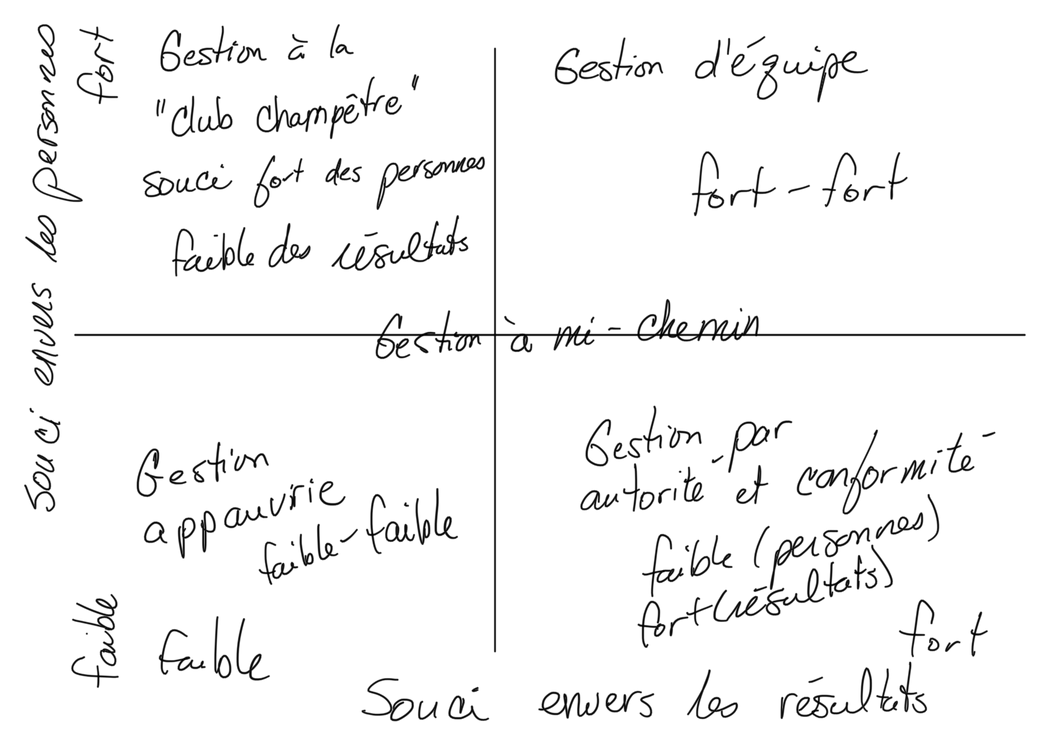 Souci envers les personnes
fort
Gestion à la
"club champêtre"
souci fort des personnes
faible des résultats
Gestion d'équipe
fort - fort
Gestion à mi-chemin
Gestion
appauvrie
faible-faible
Gestion par
autorité et conformité
faible (personnes)
fort (résultats)
faible
faible
fort
Souci envers les résultats